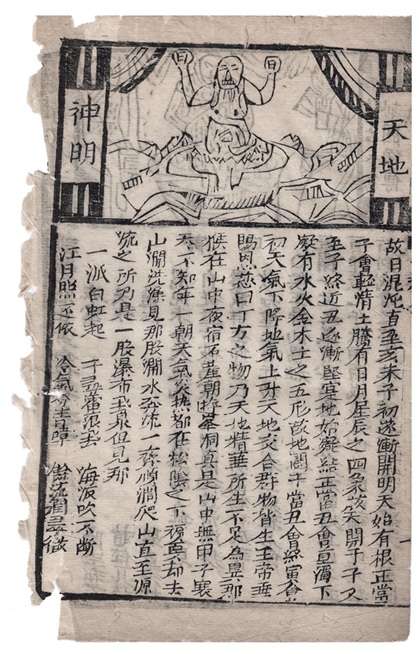 天地
神明
日
日
故曰混沌直至亥末子初遂漸開明天始有根正當
子會輕清上騰有日月星辰之四象故天開于子又
至子終近丑逐漸堅实地始凝結正當丑會重濁下
凝有水火金木土之五形故地闢于當丑會終寅會
初天氣下降地氣上升天地交合群物皆生玉帝垂
賜恩慈曰下方之物乃天地精華所生不足為異那
猴在山中夜宿石崖朝峯洞真是山中無甲子寒
天不知年一朝天氣炎热都在松陰之下頑耍却去
山澗洗澡見那股澗水奔流一齊順澗爬山直至源
流之所乃是一股瀑布飛泉但見那
一派白虹起 千尋雪浪飛 海波吹不断
江月照还依 冷氣分青嶂 餘流潤翠微